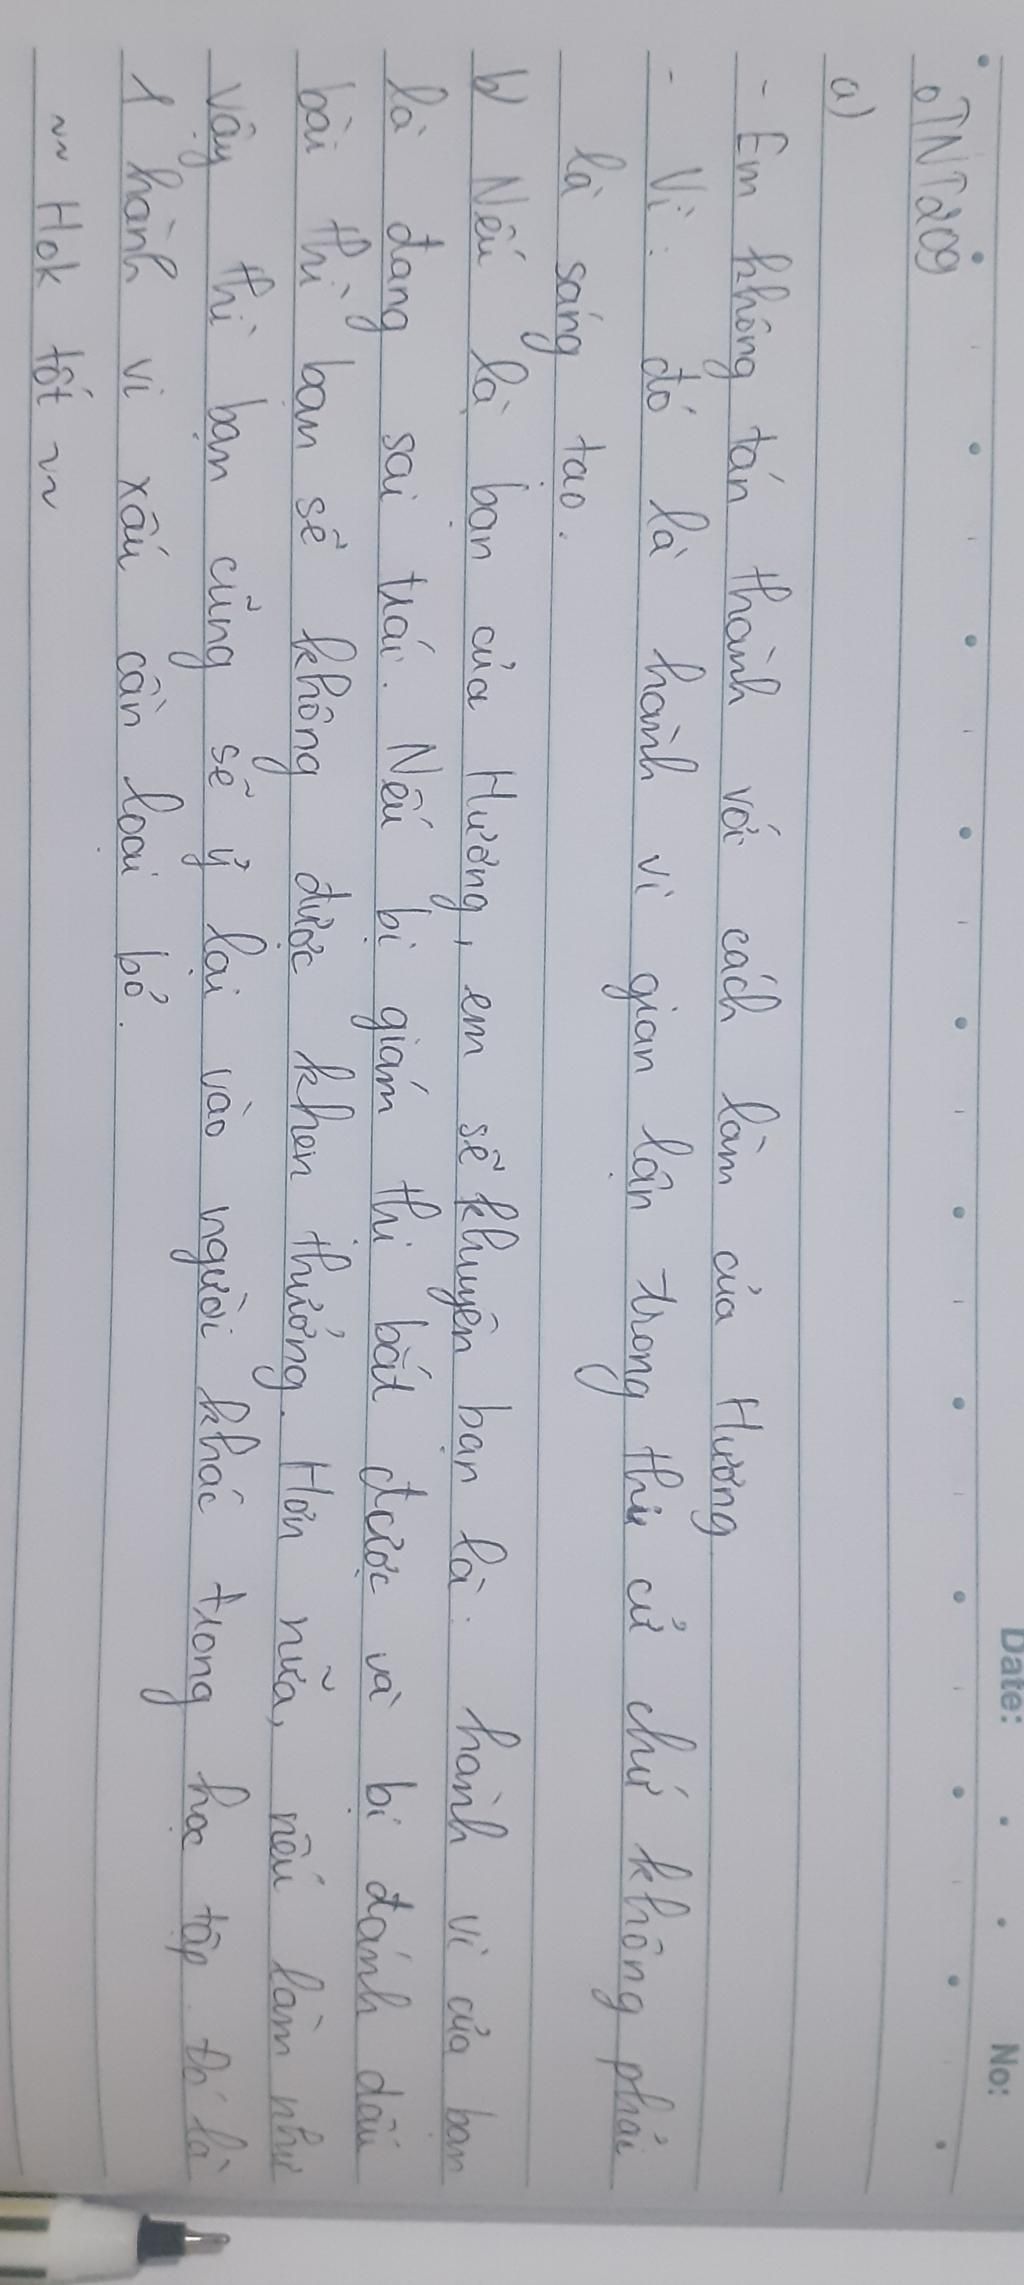 Date: No:
oTNT209
a)
- Em không tán thành với cách làm của Hương
- Vì: đó là hành vi gian lận trong thi cử chứ không phải
là sáng tạo.
b) Nếu là bạn của Hương, em sẽ khuyên bạn là: hành vi của bạn
là đang sai trái. Nếu bị giám thị bắt được và bị đánh dấu
bài thì bạn sẽ không được khen thưởng. Hơn nữa, nếu làm như
vậy thì bạn cũng sẽ ỷ lại vào người khác trong học tập. Đó là
1 hành vi xấu cần loại bỏ.
~~ Hok tốt ~~